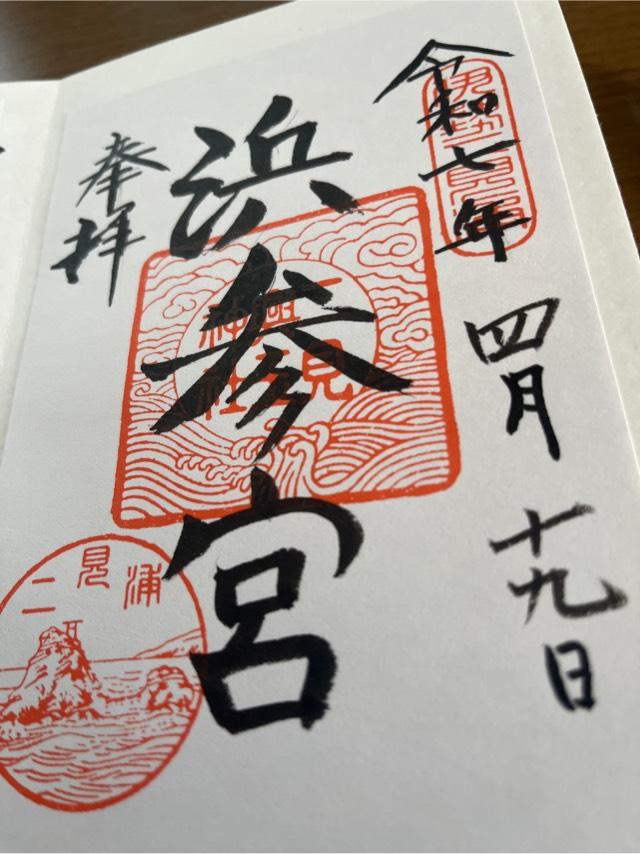 令和七年 四月 十九日
浜参宮
二見
興玉
神社
奉拝
二見浦